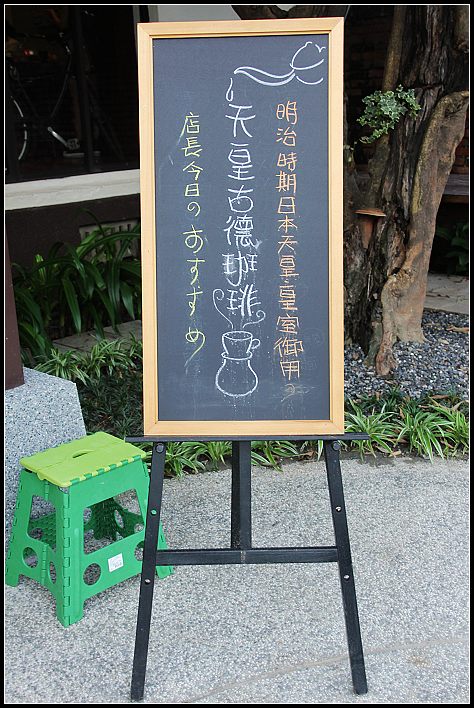 明治時期日本天皇皇室御用
天皇古德珈琲
店長今日のおすすめ